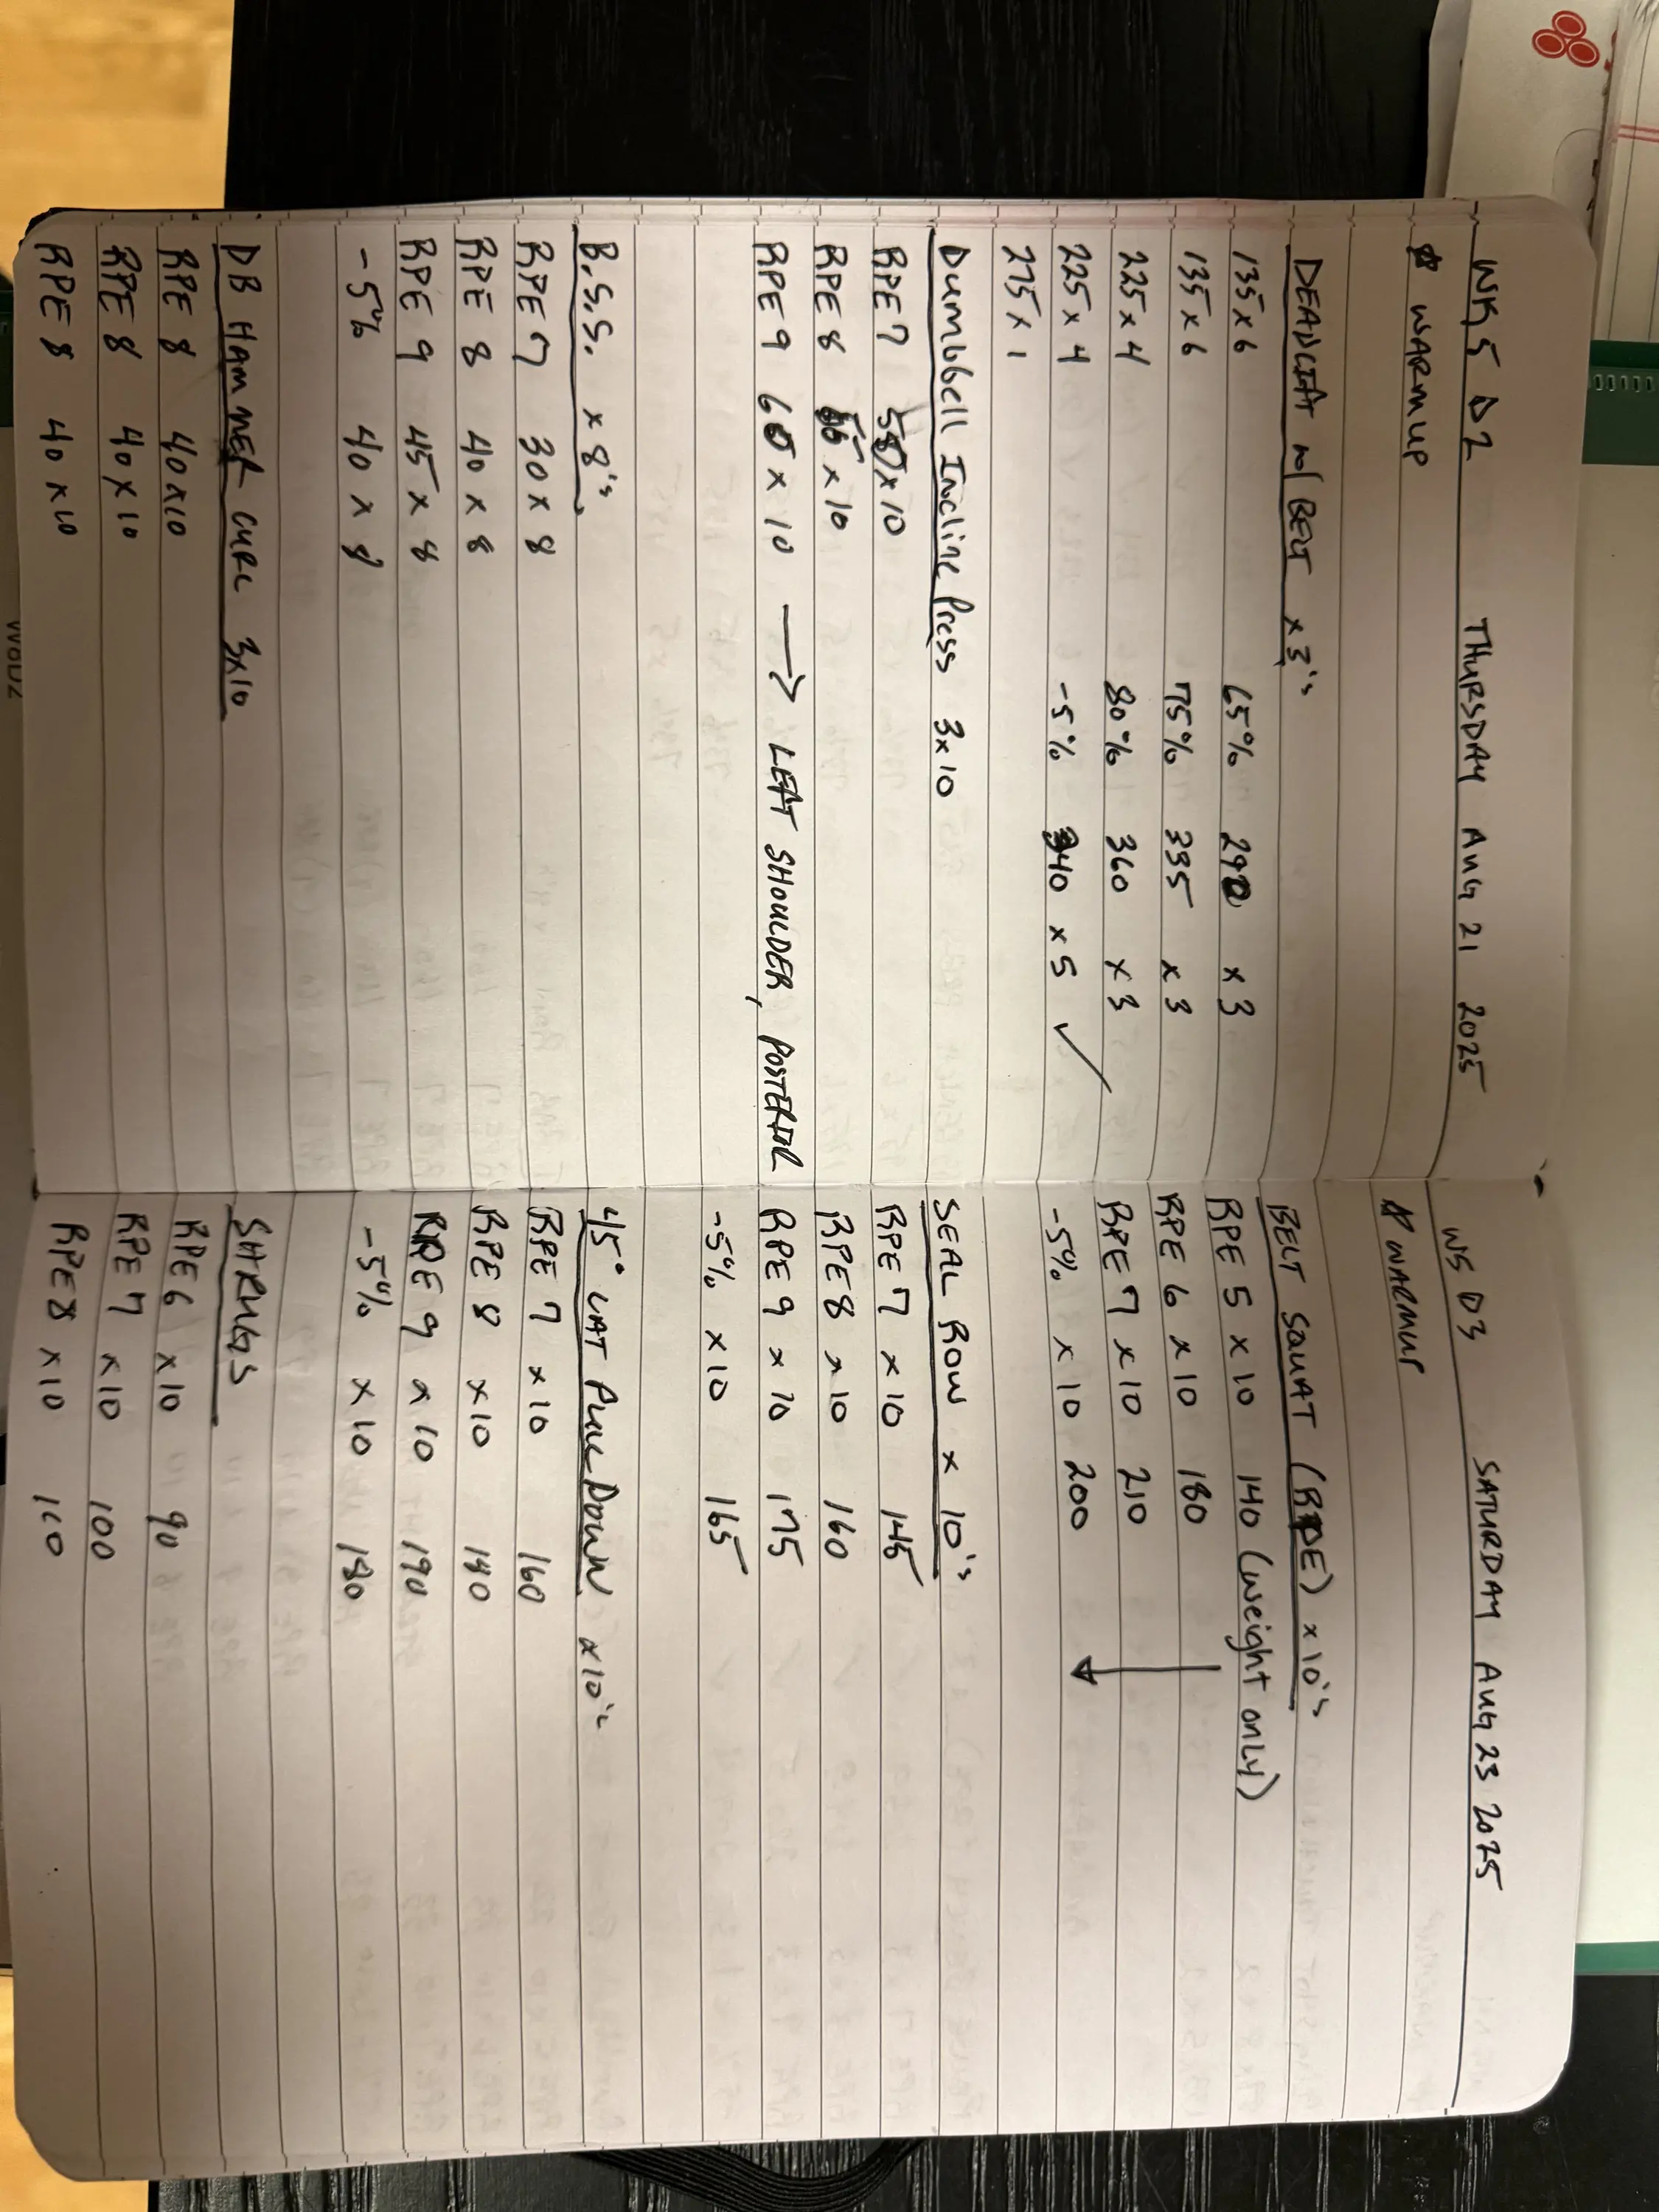 WK 5 D2 THURSDAY AUG 21 2025
WARMUP
DEADLIFT w/ BELT x3's
135 x 6 65% 290 x 3
135 x 6 75% 335 x 3
225 x 4 80% 360 x 3
225 x 4 -5% 340 x 5 ✓
275 x 1
Dumbbell Incline Press 3x10
RPE 7 50 x 10
RPE 8 55 x 10
RPE 9 60 x 10 → LEFT SHOULDER, POSTERIOR
B.S.S. x 8's
RPE 7 30 x 8
RPE 8 40 x 8
RPE 9 45 x 8
-5% 40 x 8
DB HAMMER CURL 3x10
RPE 8 40 x 10
RPE 8 40 x 10
RPE 8 40 x 10
W5 D3 SATURDAY AUG 23 2025
WARMUP
BELT SQUAT (RPE) x 10's
RPE 5 x 10 140 (weight only)
RPE 6 x 10 180
RPE 7 x 10 210
-5% x 10 200
SEAL ROW x 10's
RPE 7 x 10 145
RPE 8 x 10 160
RPE 9 x 10 175
-5% x 10 165
45° LAT PULL DOWN x10's
RPE 7 x 10 160
RPE 8 x 10 180
RPE 9 x 10 190
-5% x 10 180
SHRUGS
RPE 6 x 10 90
RPE 7 x 10 100
RPE 8 x 10 110